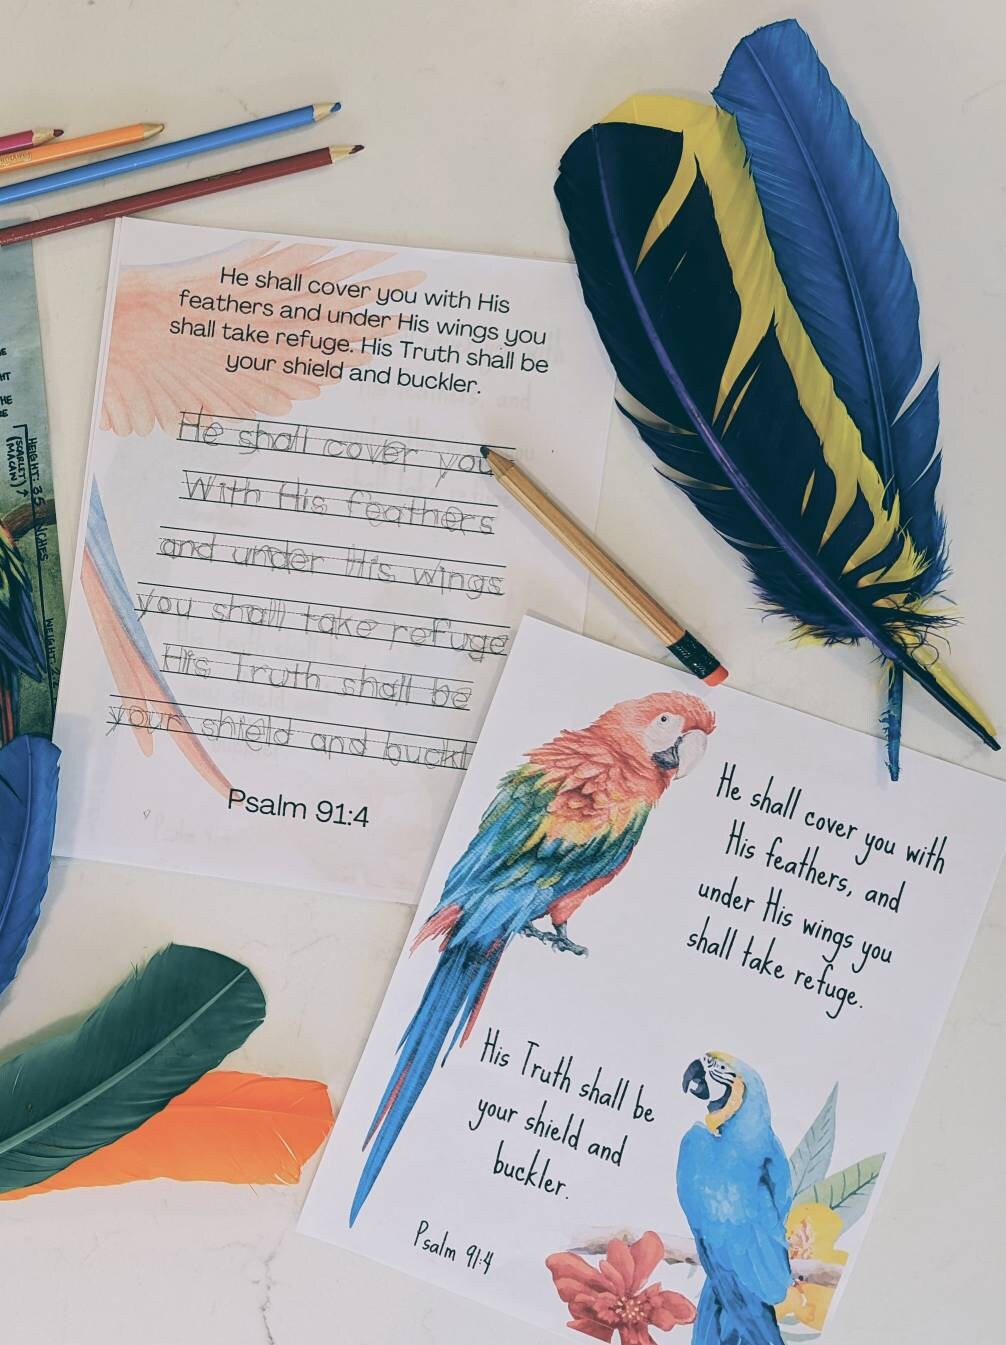 He shall cover you with His
feathers and under His wings you
shall take refuge. His Truth shall be
your shield and buckler.
He shall cover you
With His feathers
and under His wings
you shall take refuge
His Truth shall be
your shield and buckl
Psalm 91:4
He shall cover you with
His feathers, and
under His wings you
shall take refuge.
His Truth shall be
your shield and
buckler.
Psalm 91:4
HEIGHT: 35 INCHES
(SCARLET)
(MACAW)
WEIGHT: